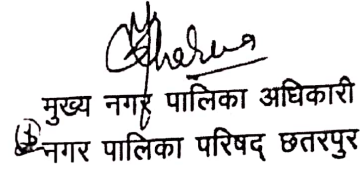 मुख्य नगर पालिका अधिकारी
नगर पालिका परिषद् छतरपुर